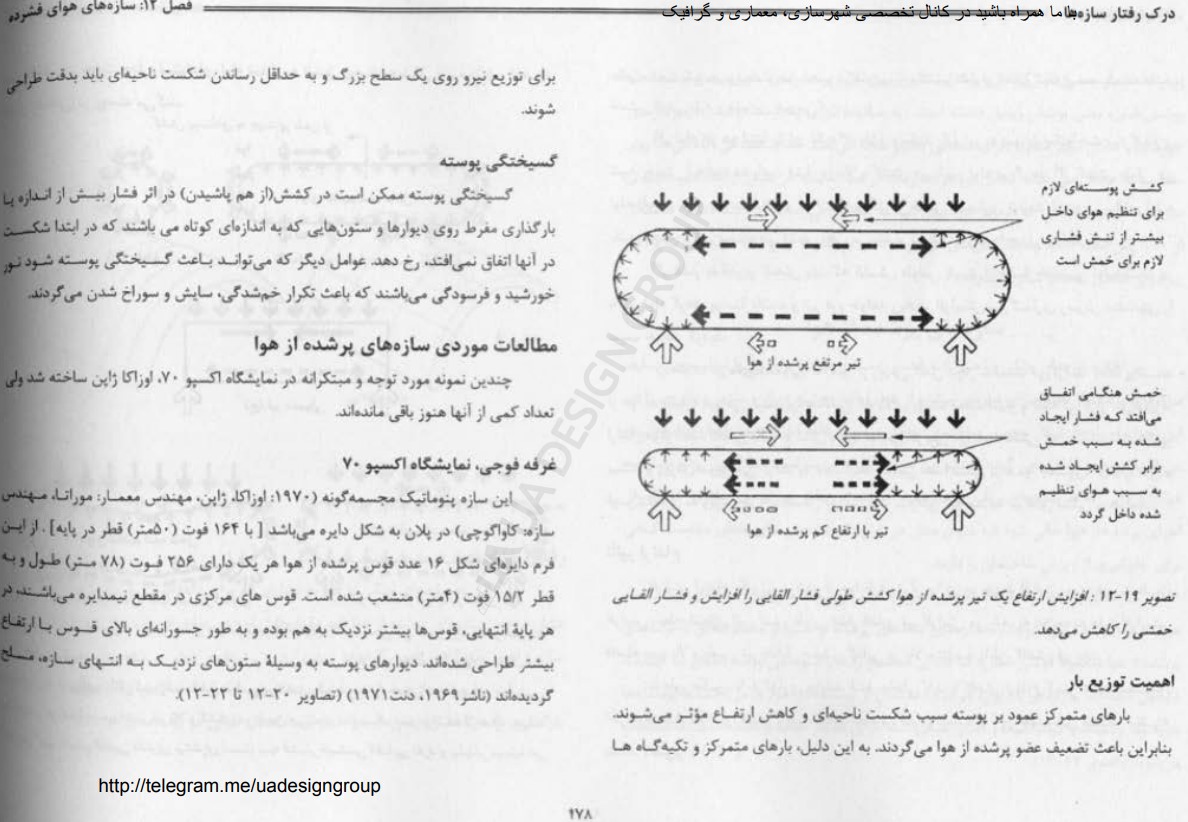 درک رفتار سازه‌ها
با ما همراه باشید در کانال تخصصی شهرسازی، معماری و گرافیک
فصل ۱۲: سازه‌های هوای فشرده
کشش پوسته‌ای لازم
برای تنظیم هوای داخل
بیشتر از تنش فشاری
لازم برای خمش است
تیر مرتفع پرشده از هوا
خمش هنگامی اتفاق
می‌افتد که فشار ایجاد
شده به سبب خمش
برابر کشش ایجاد شده
به سبب هوای تنظیم
شده داخل گردد
تیر با ارتفاع کم پرشده از هوا
تصویر ۱۹-۱۲ : افزایش ارتفاع یک تیر پرشده از هوا کشش طولی فشار القایی را افزایش و فشار القایی
خمشی را کاهش می‌دهد.
اهمیت توزیع بار
بارهای متمرکز عمود بر پوسته سبب شکست ناحیه‌ای و کاهش ارتفاع مؤثر می‌شوند
بنابراین باعث تضعیف عضو پرشده از هوا می‌گردند. به این دلیل، بارهای متمرکز و تکیه‌گاه ها
برای توزیع نیرو روی یک سطح بزرگ و به حداقل رساندن شکست ناحیه‌ای باید بدقت طراحی
شوند.
گسیختگی پوسته
گسیختگی پوسته ممکن است در کشش(از هم پاشیدن) در اثر فشار بیش از اندازه یا
بارگذاری مفرط روی دیوارها و ستون‌هایی که به اندازه‌ای کوتاه می باشند که در ابتدا شکست
در آنها اتفاق نمی‌افتد، رخ دهد. عوامل دیگر که می‌تواند باعث گسیختگی پوسته شود نور
خورشید و فرسودگی می‌باشند که باعث تکرار خم‌شدگی، سایش و سوراخ شدن می‌گردند.
مطالعات موردی سازه‌های پرشده از هوا
چندین نمونه مورد توجه و مبتکرانه در نمایشگاه اکسپو ۷۰، اوزاکا ژاپن ساخته شد ولی
تعداد کمی از آنها هنوز باقی مانده‌اند.
غرفه فوجی، نمایشگاه اکسپو ۷۰
این سازه پنوماتیک مجسمه‌گونه (۱۹۷۰؛ اوزاکا، ژاپن، مهندس معمار: موراتا، مهندس
سازه: کاواگوچی) در پلان به شکل دایره می‌باشد [ با ۱۶۴ فوت (۵۰متر) قطر در پایه] . از این
فرم دایره‌ای شکل ۱۶ عدد قوس پرشده از هوا هر یک دارای ۲۵۶ فوت (۷۸ متر) طول و به
قطر ۱۵/۲ فوت (۴متر) منشعب شده است. قوس های مرکزی در مقطع نیمدایره می‌باشند، در
هر پایهٔ انتهایی، قوس‌ها بیشتر نزدیک به هم بوده و به طور جسورانه‌ای بالای قوس با ارتفاع
بیشتر طراحی شده‌اند. دیوارهای پوسته به وسیلهٔ ستون‌های نزدیک به انتهای سازه، مسلح
گردیده‌اند (ناشر، ۱۹۶۹، دنت ۱۹۷۱) (تصاویر ۲۰-۱۲ تا ۲۳-۱۲).
UA DESIGN GROUP
http://telegram.me/uadesigngroup
۲۷۸